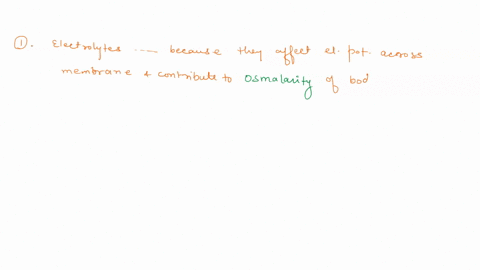 ①. Electrolytes ..... because they affect el. pot. across
membrane & contribute to osmalarity of bod